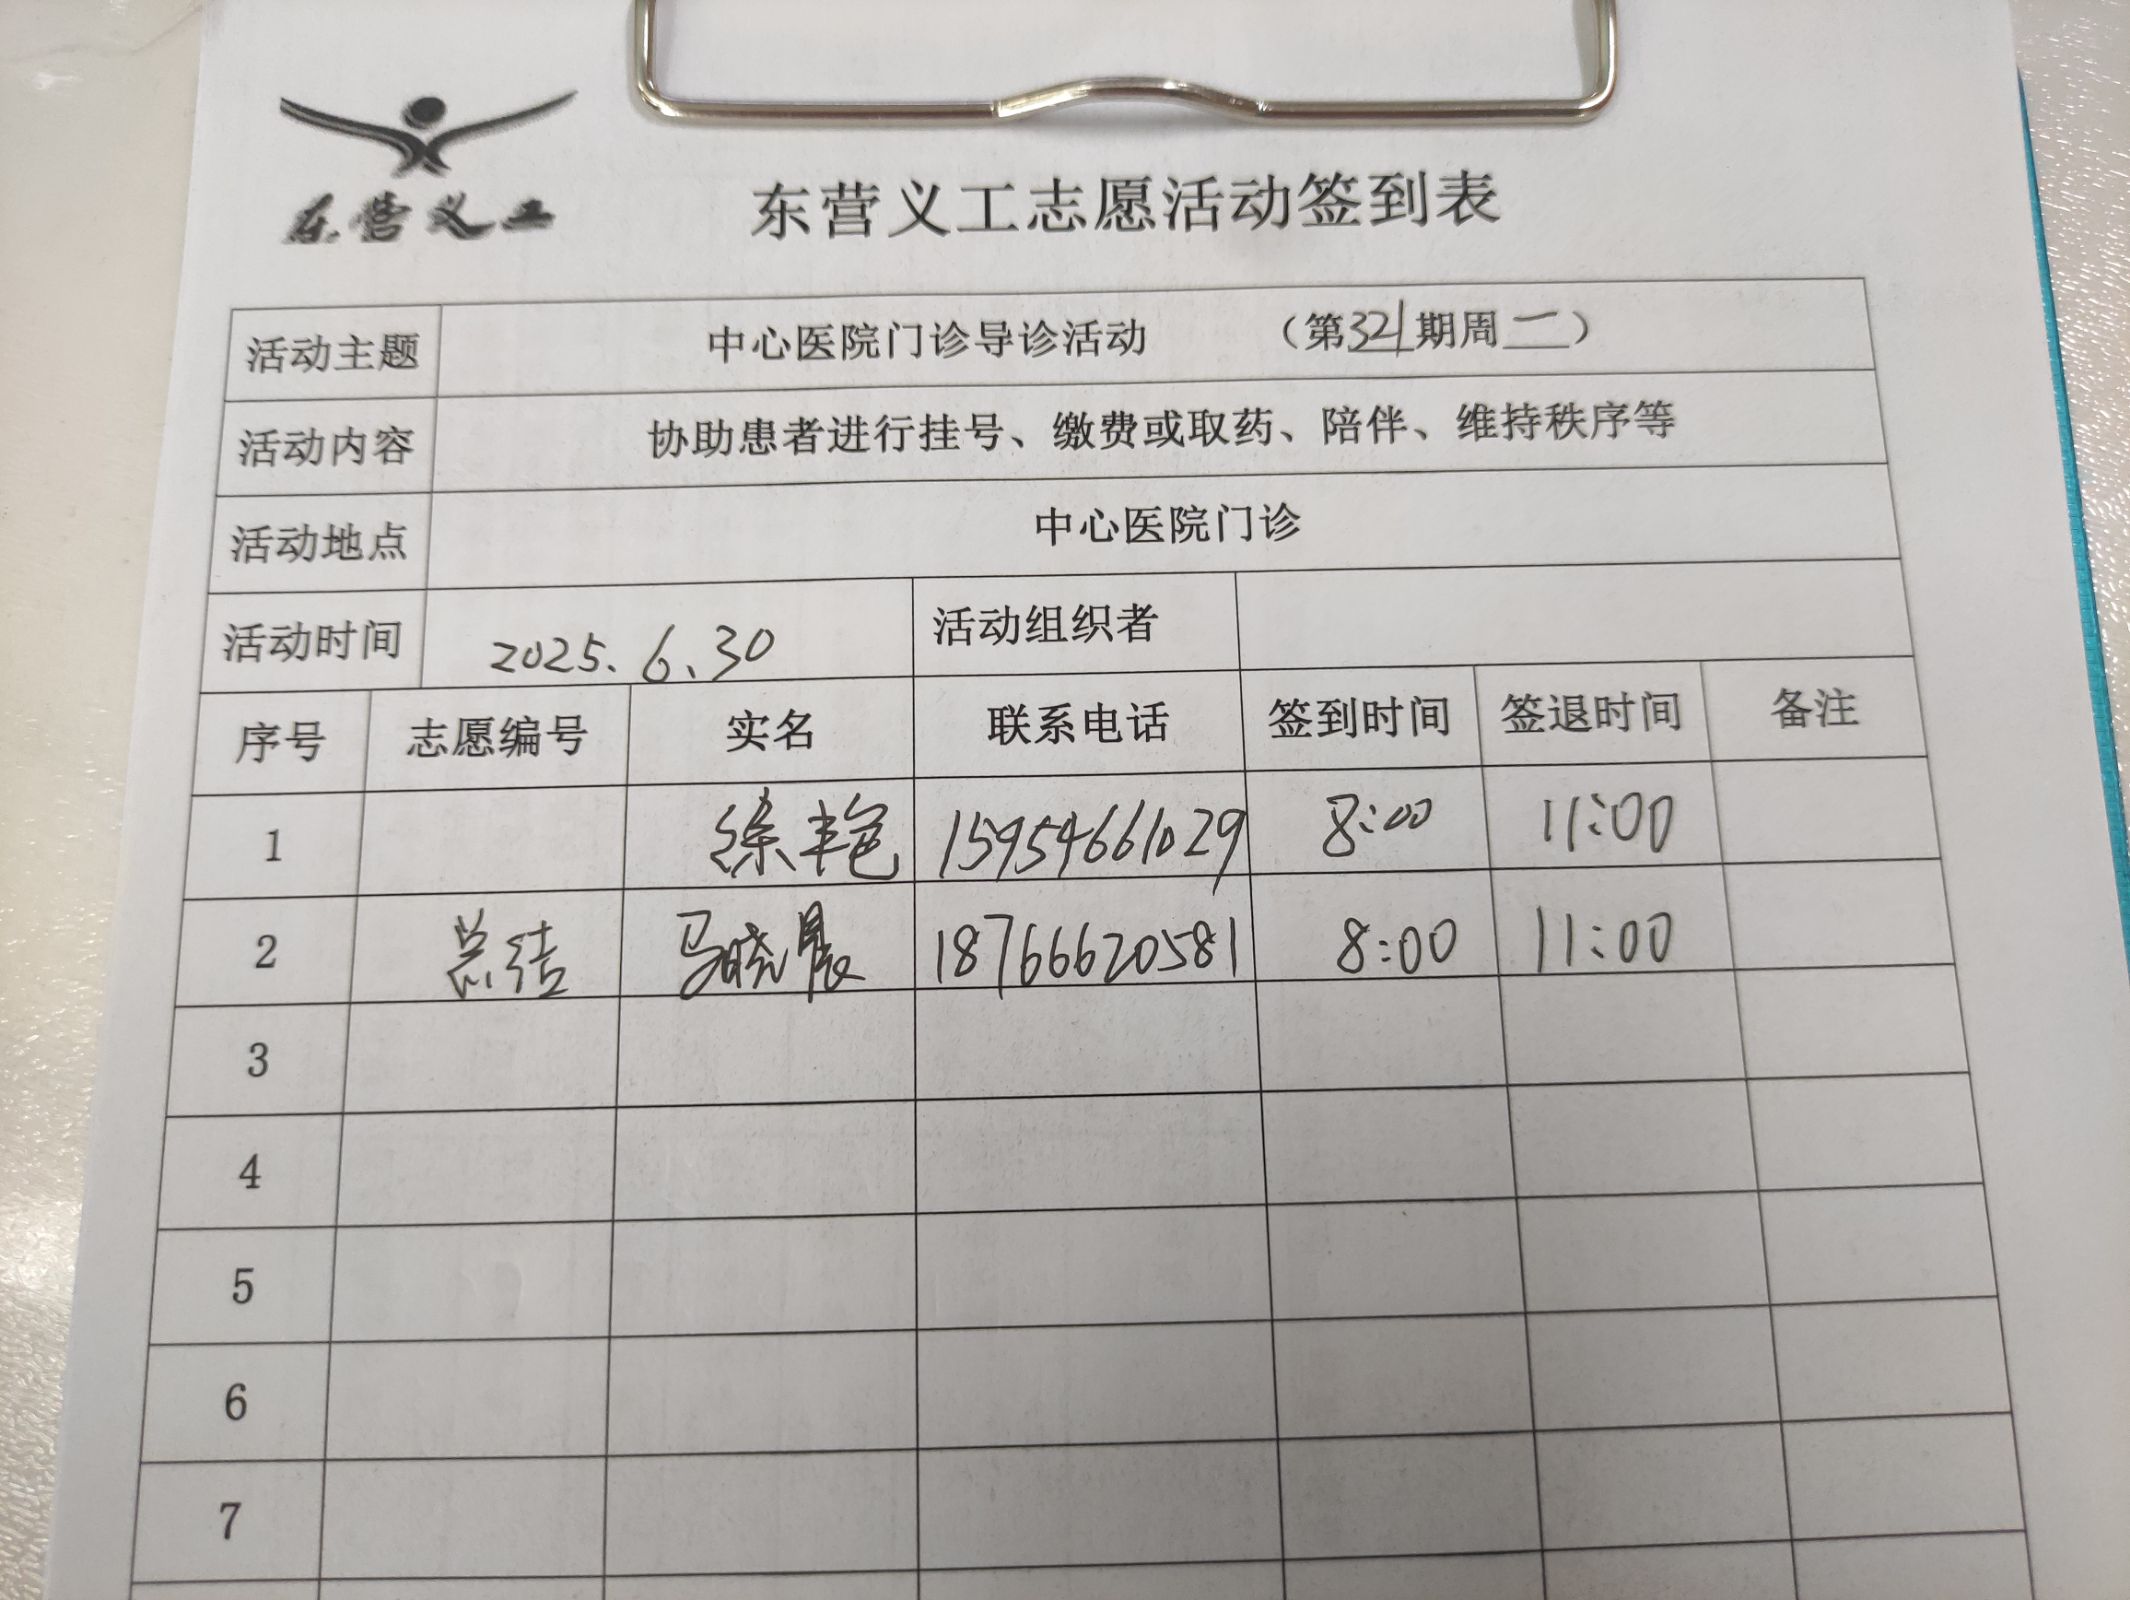 东营义工
东营义工志愿活动签到表
活动主题 中心医院门诊导诊活动 （第321期周一）
活动内容 协助患者进行挂号、缴费或取药、陪伴、维持秩序等
活动地点 中心医院门诊
活动时间 2025.6.30 活动组织者
序号 志愿编号 实名 联系电话 签到时间 签退时间 备注
1 徐丰艳 15954661029 8:00 11:00
2 总结 马晓晨 18766620581 8:00 11:00
3
4
5
6
7